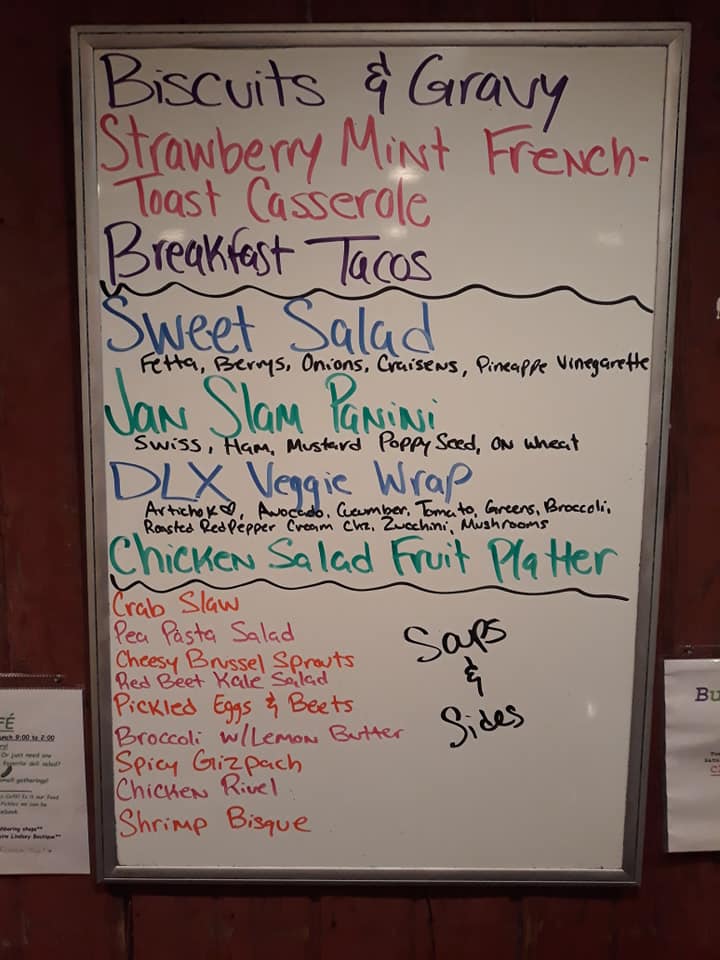 Biscuits & Gravy
Strawberry Mint French-
Toast Casserole
Breakfast Tacos
Sweet Salad
Fetta, Berrys, Onions, Craisens, Pineappe Vinegarette
Jan Slam Panini
Swiss, Ham, Mustard Poppy Seed, on wheat
DLX Veggie Wrap
Artichok♡, Avocado, Cucumber, Tomato, Greens, Broccoli,
Roasted Red Pepper Cream Chz, Zucchini, Mushrooms
Chicken Salad Fruit Platter
Crab Slaw
Pea Pasta Salad
Cheesy Brussel Sprouts
Red Beet Kale Salad
Pickled Eggs & Beets
Broccoli w/Lemon Butter
Spicy Gizpach
Chicken Rivel
Shrimp Bisque
Soups
&
Sides
FÉ
unch 9:00 to 2:00
Or just need one
favorite deli salad?
small gatherings!
it our food
we can be
shops**
Lindsey Boutique**
Bu